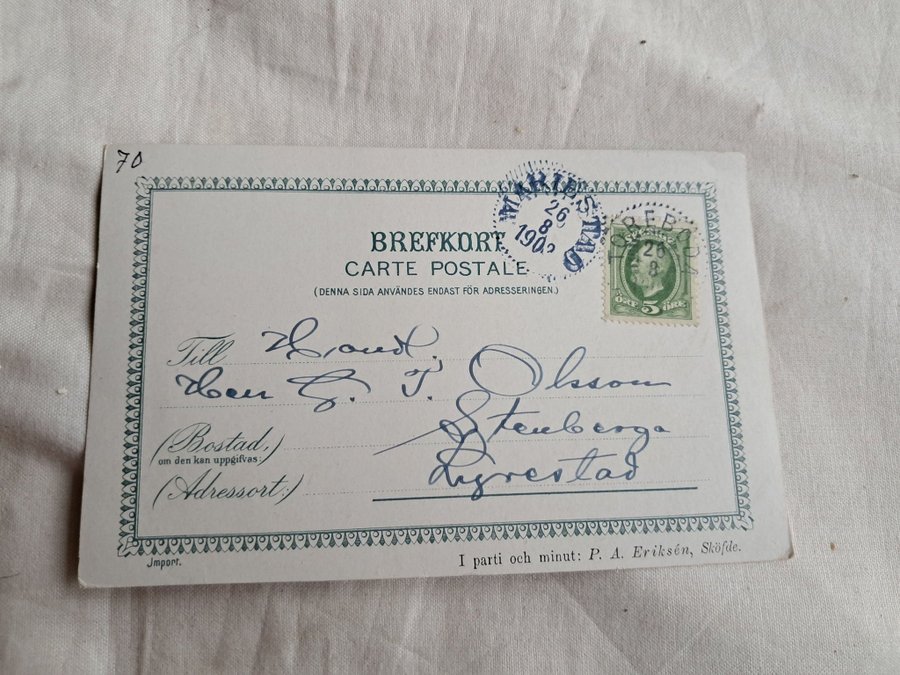 70
BREFKORT
CARTE POSTALE
(DENNA SIDA ANVÄNDES ENDAST FÖR ADRESSERINGEN.)
MARIESTAD
26
8
1902
TÖREBODA
26
8
ÖRE 5 ÖRE
Till Hand.
Herr G. T. Olsson
(Bostad,)
om den kan uppgifvas:
Stenberga
(Adressort:)
Lyrestad
Import.
I parti och minut: P. A. Eriksén, Sköfde.